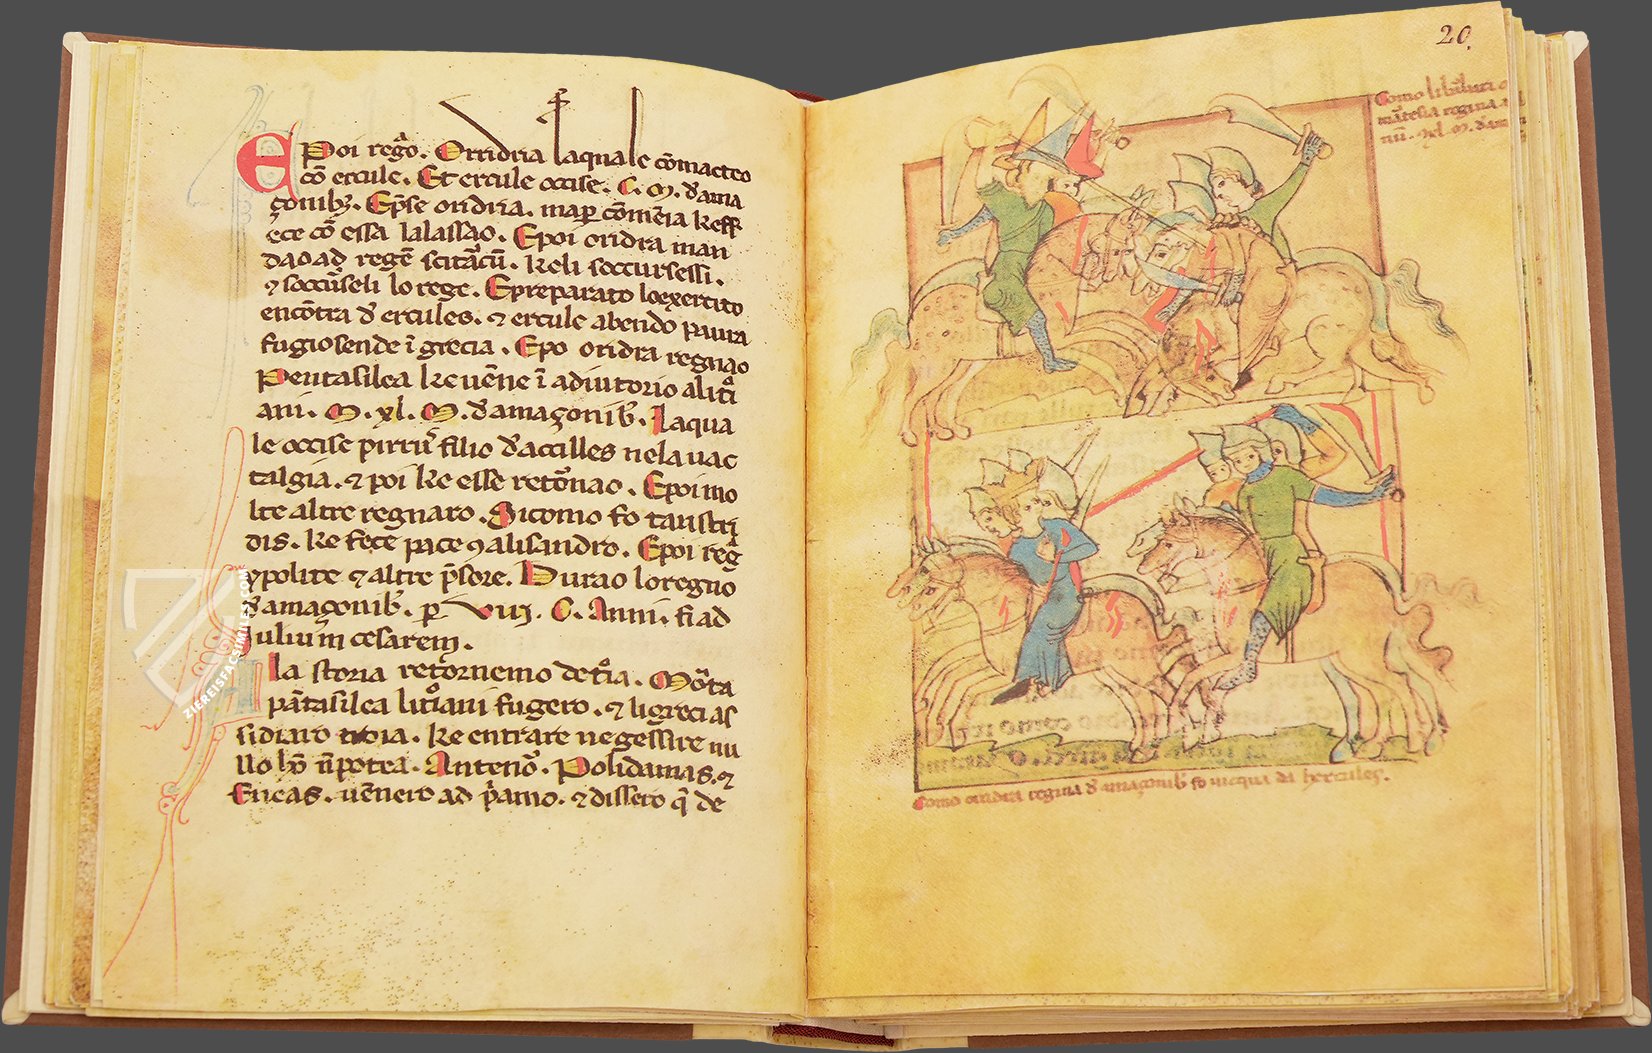 Epoi reg̃o. Orridria laquale cõmacteo
cõ ercule. Et ercule occise. C. M. d'ama
çonibꝫ. Ep̃se oridria. map̲ cõmẽcia keff
ece cõ essa lalassao. Epoi oridra man
dao ad regẽ scitãcũ. keli soccursessi.
⁊ soccũseli lo rege. Epreparato loexercito
encõtra d' ercules. ⁊ ercule abendo paura
fugiosende ĩ grecia. Epo oridra regnao
Pentasilea ke uẽne ĩ adiutorio ali
ani. M. xl. M. d'amaçonibꝫ. Laqua
le occise pirru filio d'accilles nela uac
talgia. ⁊ poi ke esse retõnao. Epoi mo
lte altre regnaro. Sicomo fo tanstri
dis. ke fece pace ꝯ alisandro. Epoi reg̃
ypolite ⁊ altre p̃sore. Durao loregno
d'amaçonibꝫ. p̲ VIII. C. Anni. fi ad
iulium cesarem.
la storia retornemo de
pãtasilea litr̃oiani fugero. ⁊ ligreci as
sidiaro troia. ke entrare ne gessire nu
llo hõ ñ potea. Anteno. Polidamas. ⁊
Eneas. uẽnero ad p̃amo. ⁊ dissero q̃ de
ZIEREISFACSIMILES.COM
20.
Como
regina
Como oridra regina d' amaçonibꝫ fo da hercules.